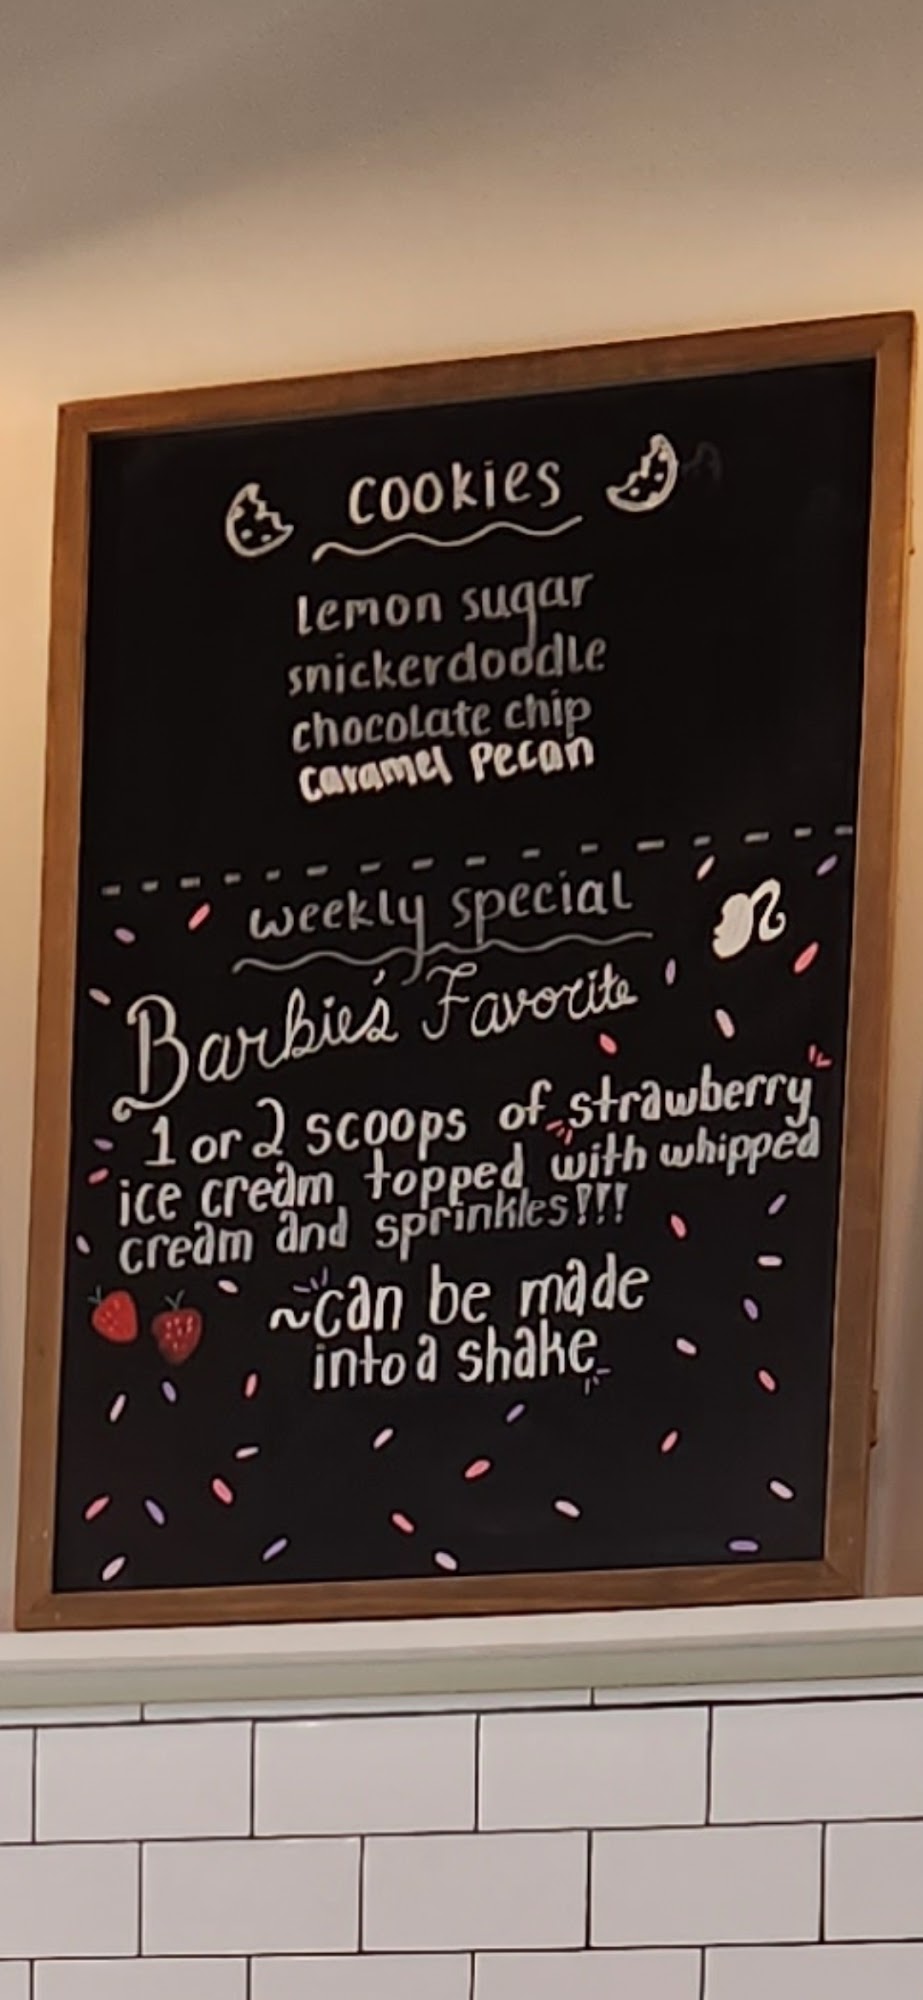 cookies
Lemon sugar
snickerdoodle
chocolate chip
Caramel Pecan
weekly special
Barbie's Favorite
1 or 2 scoops of strawberry
ice cream topped with whipped
cream and sprinkles!!!
~can be made
into a shake